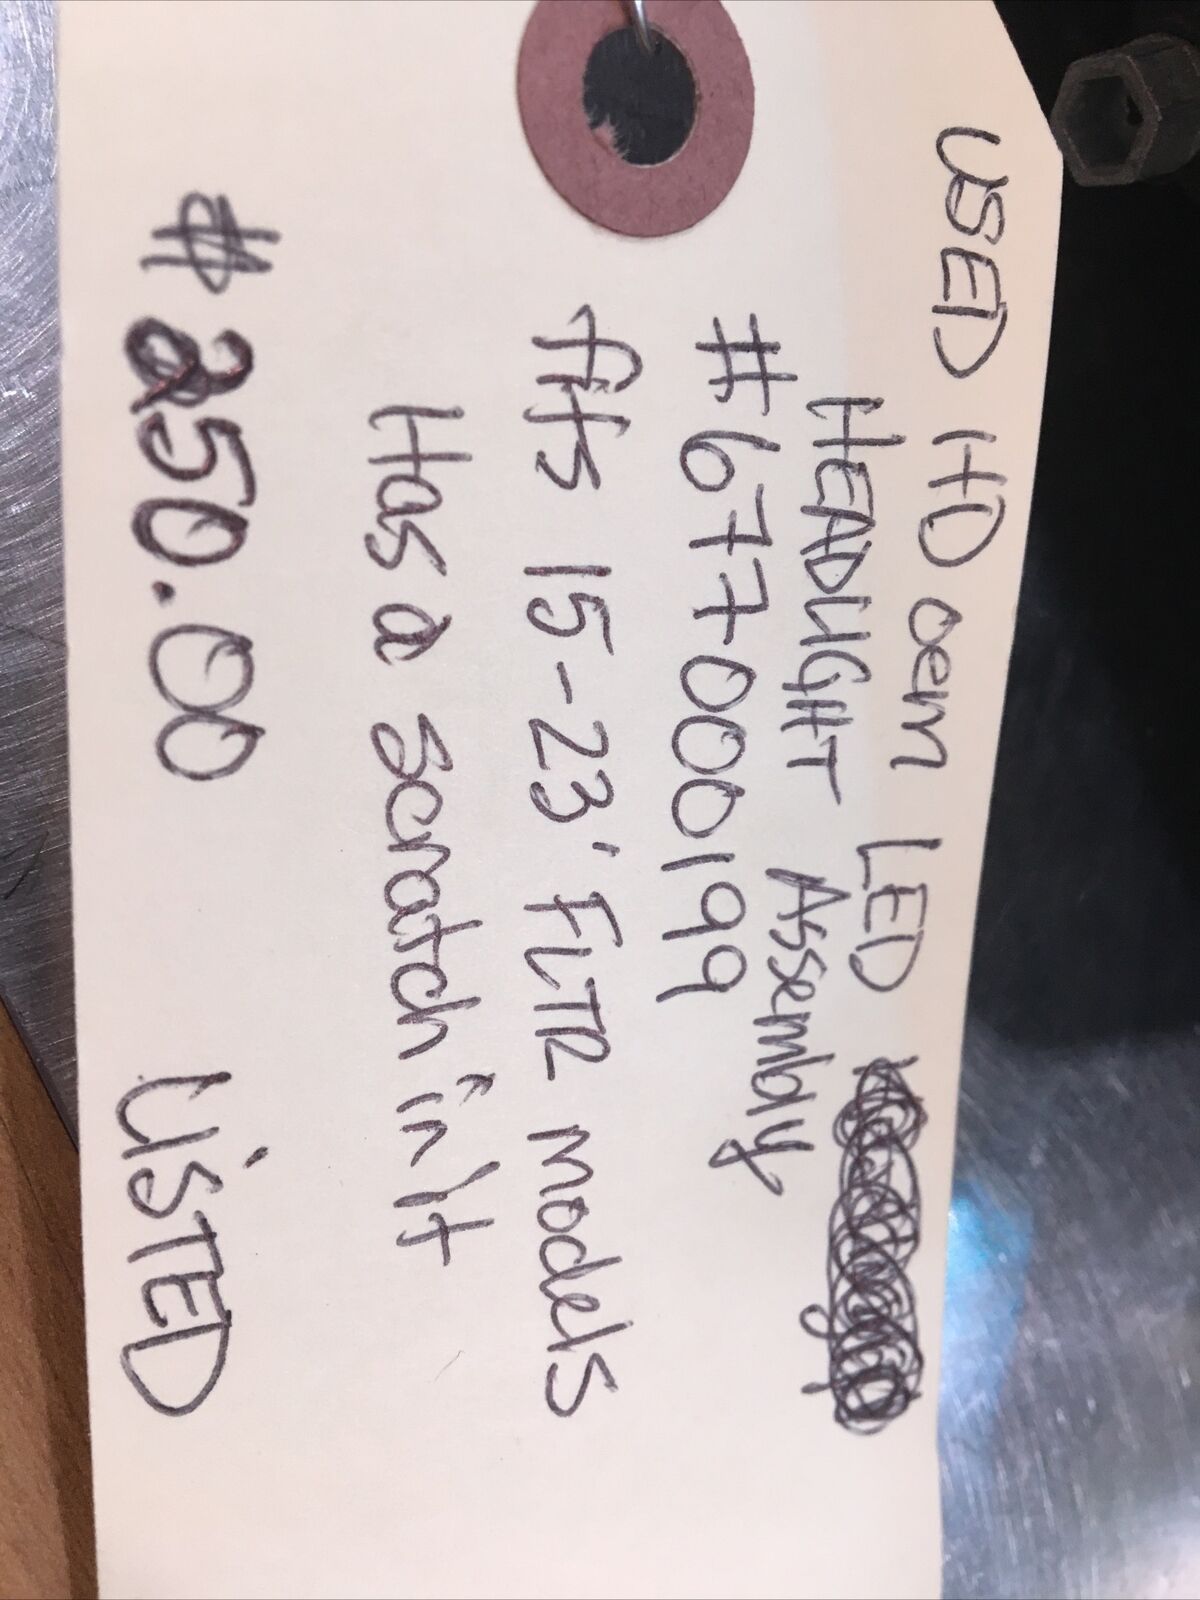 USED HD oem LED
HEADLIGHT Assembly
#67700199
fits 15-23' FLTR models
Has a scratch in it
$250.00 LiSTED